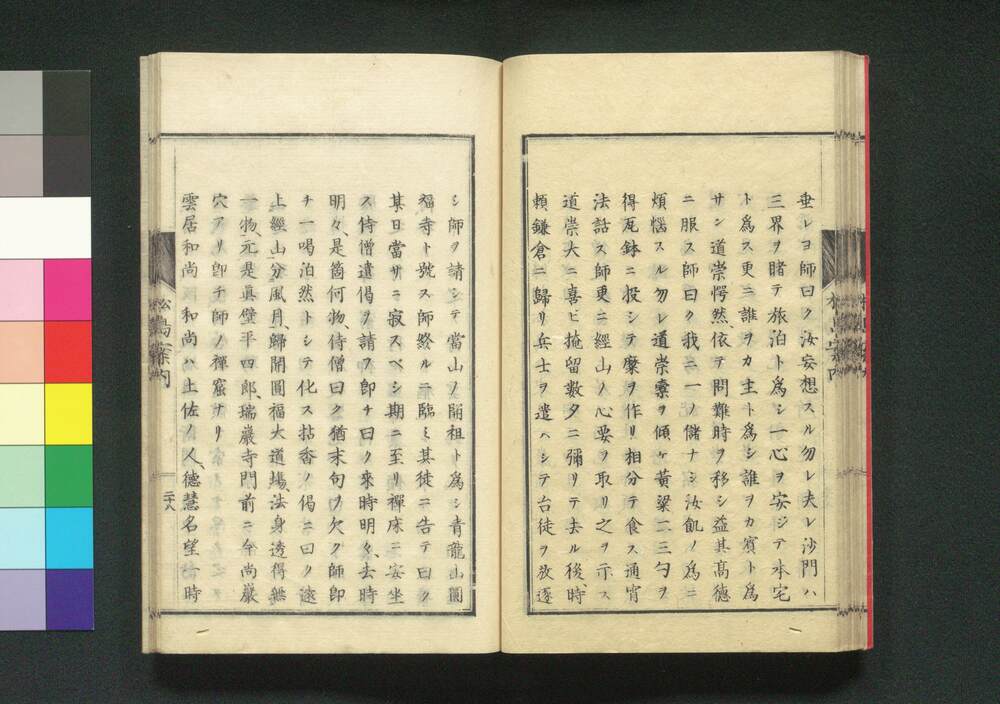 垂レヨ師曰ク汝妄想スル勿レ夫レ沙門ハ
三界ヲ睹テ旅泊ト為シ一心ヲ安ジテ本宅
ト為ス更ニ誰ヲカ主ト為シ誰ヲカ賓ト為
サン道崇愕然、依テ問難時ヲ移シ益其高徳
ニ服ス師曰ク我ニ一ノ儲ナシ汝飢ノ為ニ
煩惱スル勿レ道崇嚢ヲ傾ケ黄粱二三勺ヲ
得瓦鉢ニ投シテ糜ヲ作リ相分テ食ス通宵
法話ス師更ニ經山ノ心要ヲ取リ之ヲ示ス
道崇大ニ喜ビ掩留數夕ニ彌リテ去ル後、時
頼鎌倉ニ歸リ兵士ヲ遣ハシテ台徒ヲ放逐
シ師ヲ請シテ當山ノ開祖ト為シ青龍山圓
福寺ト號ス師終ルニ臨ミ其徒ニ告テ曰ク
某日當サニ寂スベシ期ニ至リ禪床ニ安坐
ス侍僧遺偈ヲ請フ即チ曰ク來時明々、去時
明々、是箇何物、侍僧曰ク猶末句ヲ欠ク師即
チ一喝泊然トシテ化ス拈香ノ偈ニ曰ク遠
上經山分風月、歸開圓福大道場、法身透得無
一物、元是眞壁平四郎、瑞巖寺門前ニ今尚巖
穴アリ即チ師ノ禪窟ナリ
雲居和尚 和尚ハ土佐ノ人、德慧名望一時
松島案内
二十八